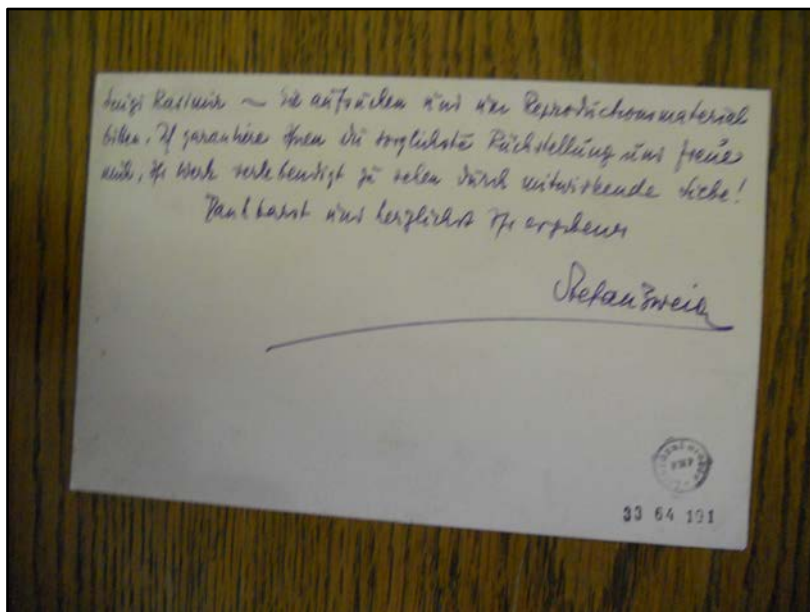 Luigi Kasimir ~ Sie aufsuchen und um Reproductionsmaterial
bitten. Ich garantiere Ihnen die sorglichste Rückstellung und freue
mich, Ihr Werk verlebendigt zu sehen durch mitwirkende Liebe!
Dankbarst und herzlichst Ihr ergebener
Stefan Zweig
33 64 191